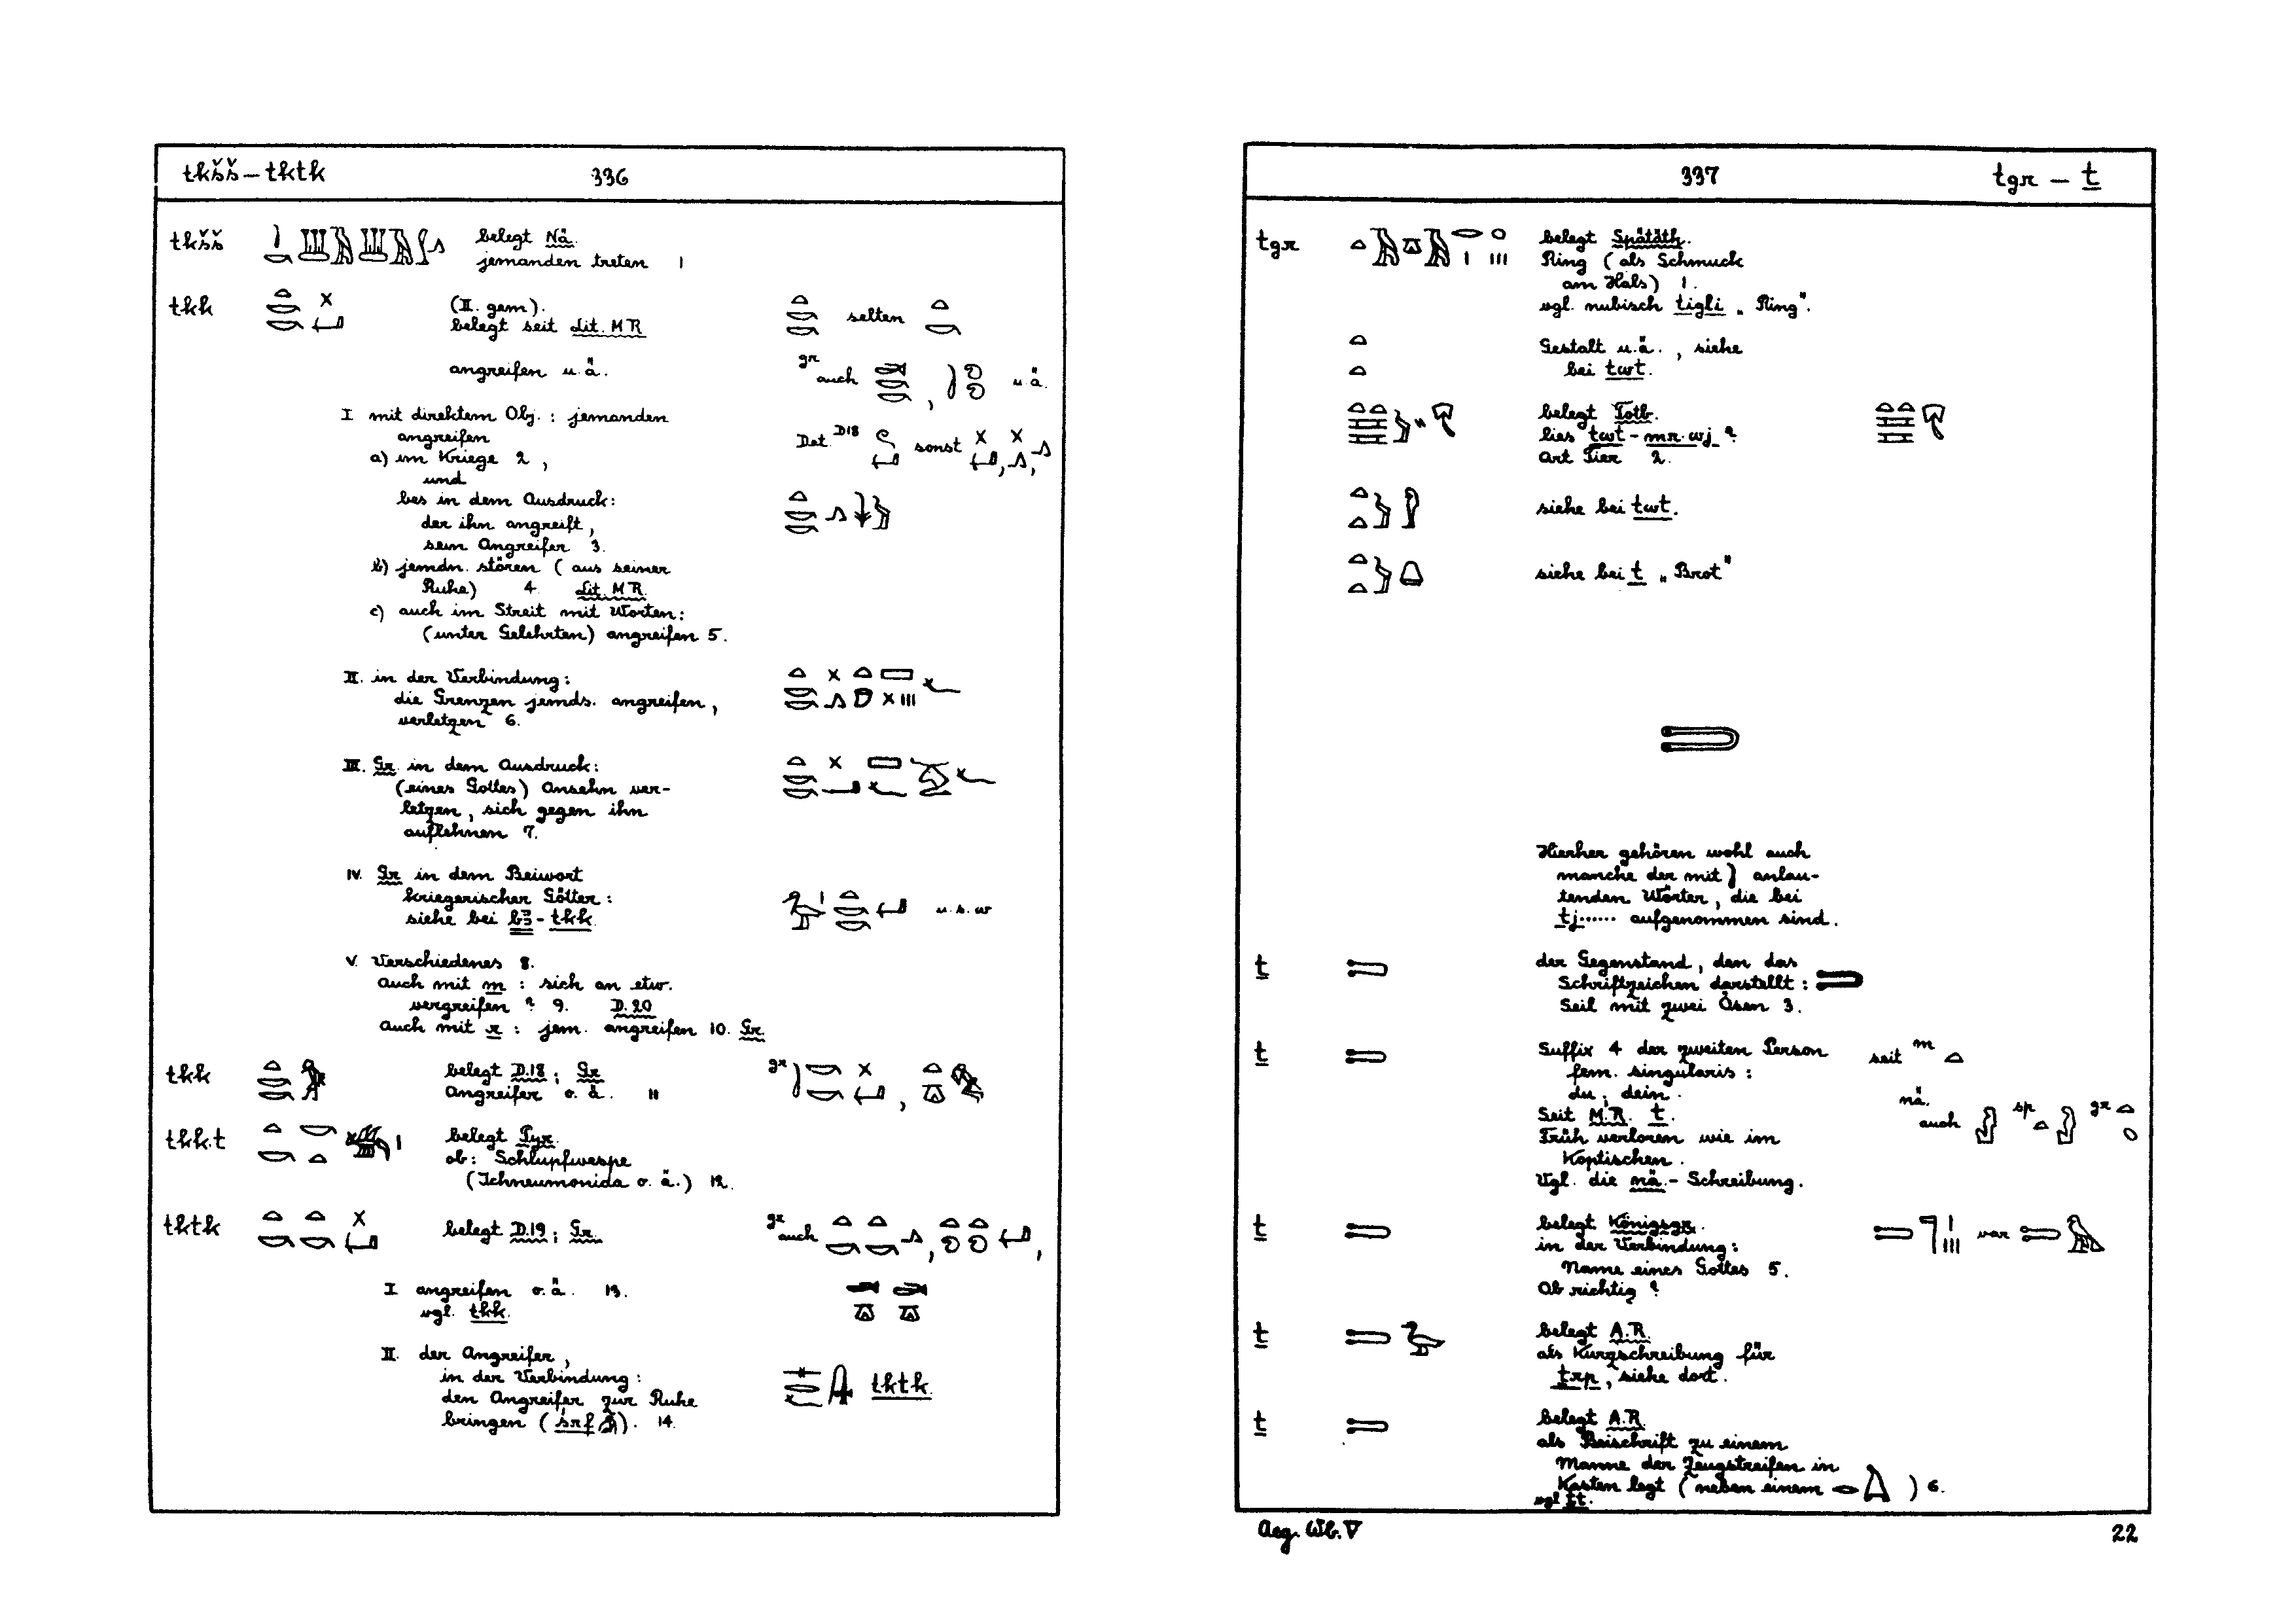 tkšš – tktk 336
tkšš belegt Nä.
jemanden treten 1
tkk (II. gem).
belegt seit Lit. MR
selten
angreifen u. ä.
gr auch , u. ä.
I mit direktem Obj.: jemanden
angreifen
Det. D18 sonst , ,
a) im Kriege 2 ,
und
bes in dem Ausdruck:
der ihn angreift,
sein Angreifer 3.
b) jemdn. stören ( aus seiner
Ruhe) 4. Lit. MR.
c) auch im Streit mit Worten:
(unter Gelehrten) angreifen 5.
II. in der Verbindung:
die Grenzen jemds. angreifen,
verletzen 6.
III. Gr. in dem Ausdruck:
(eines Gottes) Ansehn ver-
letzen, sich gegen ihn
auflehnen 7.
IV. Gr in dem Beiwort
kriegerischer Götter :
siehe bei bꜣ-tkk. u. s. w
V. Verschiedenes 8.
Auch mit m : sich an etw.
vergreifen ? 9. D. 20
Auch mit r : jem. angreifen 10. Gr.
tkk belegt D.18 ; Gr
Angreifer o. ä. 11
gr ,
tkk.t belegt Pyr.
ob: Schlupfwespe
(Ichneumonida o. ä.) 12.
tktk belegt D.19 ; Gr.
gr auch , ,
I angreifen o. ä. 13.
vgl. tkk.
II. der Angreifer,
in der Verbindung:
den Angreifer zur Ruhe
bringen ( śrf ). 14.
tktk.
337 tgr – ṯ
tgr belegt Spätäth.
Ring ( als Schmuck
am Hals) 1.
vgl. nubisch tigli „ Ring".
Gestalt u. ä. , siehe
bei twt.
belegt Totb.
lies twt-mr.wj ?
Art Tier 2.
siehe bei twt.
siehe bei t „ Brot"
Hierher gehören wohl auch
manche der mit anlau-
tenden Wörter, die bei
tj...... aufgenommen sind.
ṯ der Gegenstand, den das
Schriftzeichen darstellt :
Seil mit zwei Ösen 3.
ṯ Suffix 4 der zweiten Person
fem. singularis :
du ; dein.
seit m
Seit M.R. t.
nä. auch sp gr
Früh verloren wie im
Koptischen.
Vgl. die nä.-Schreibung.
ṯ belegt Königsgr.
in der Verbindung:
Name eines Gottes 5.
Ob richtig ?
var
ṯ belegt A.R.
als Kurzschreibung für
ṯrp, siehe dort.
ṯ belegt A.R.
als Beischrift zu einem
Manne der Zeugstreifen in
Kasten legt ( neben einem ) 6.
Aeg. Wb. V 22